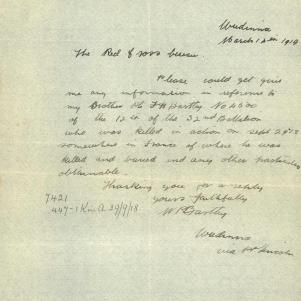 Wudinna
March 12th 1919
The Red Cross
Please could you give
me any information in reference to
my Brother Pte F H Bartley No 4600
of the 12th of the 32nd Battalion
who was killed in action on Sept 29th 18
somewhere in France of where he was
killed and buried and any other particulars
obtainable.
Thanking you for a reply
7421
yours faithfully
447-1 K in A 29/9/18
W P Bartley
Wudinna
via Pt Lincoln